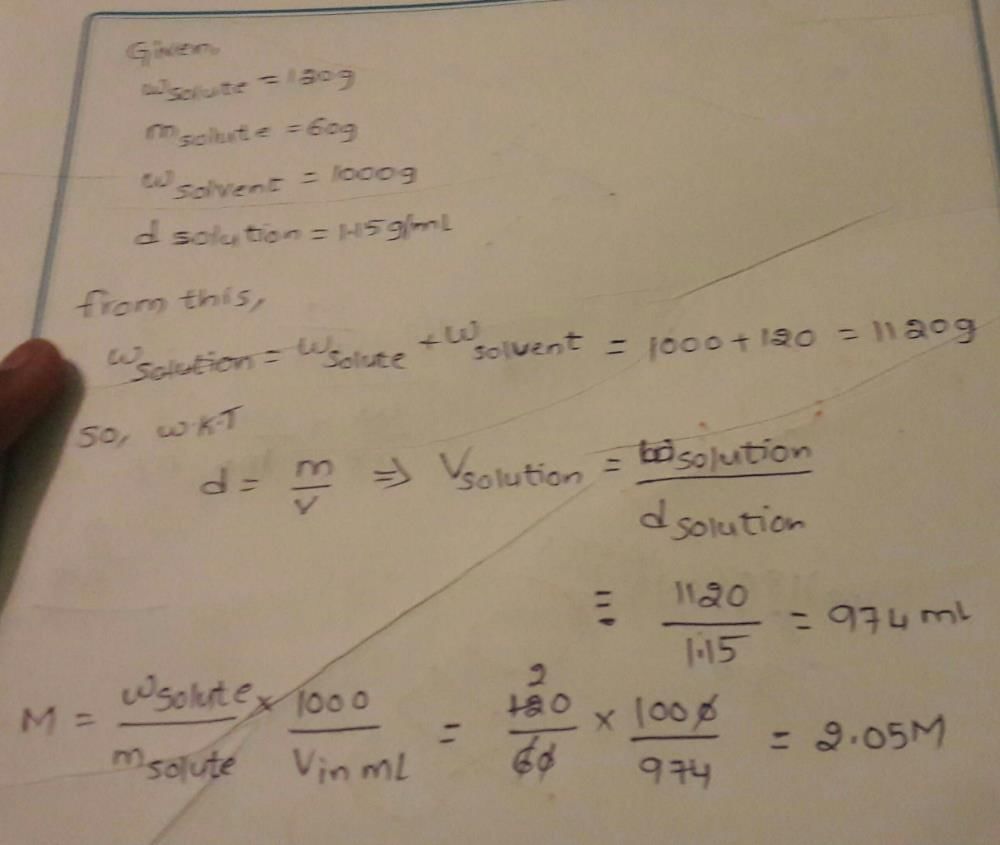 Given,
w solute = 120g
m solute = 60g
w solvent = 1000g
d solution = 1.15 g/mL
from this,
w solution = w solute + w solvent = 1000 + 120 = 1120g
so, w.k.T
d = m/v ⇒ V solution = w solution / d solution
= 1120/1.15 = 974 ml
M = w solute / m solute × 1000 / V in mL = 120/60 2 × 1000/974 = 2.05M